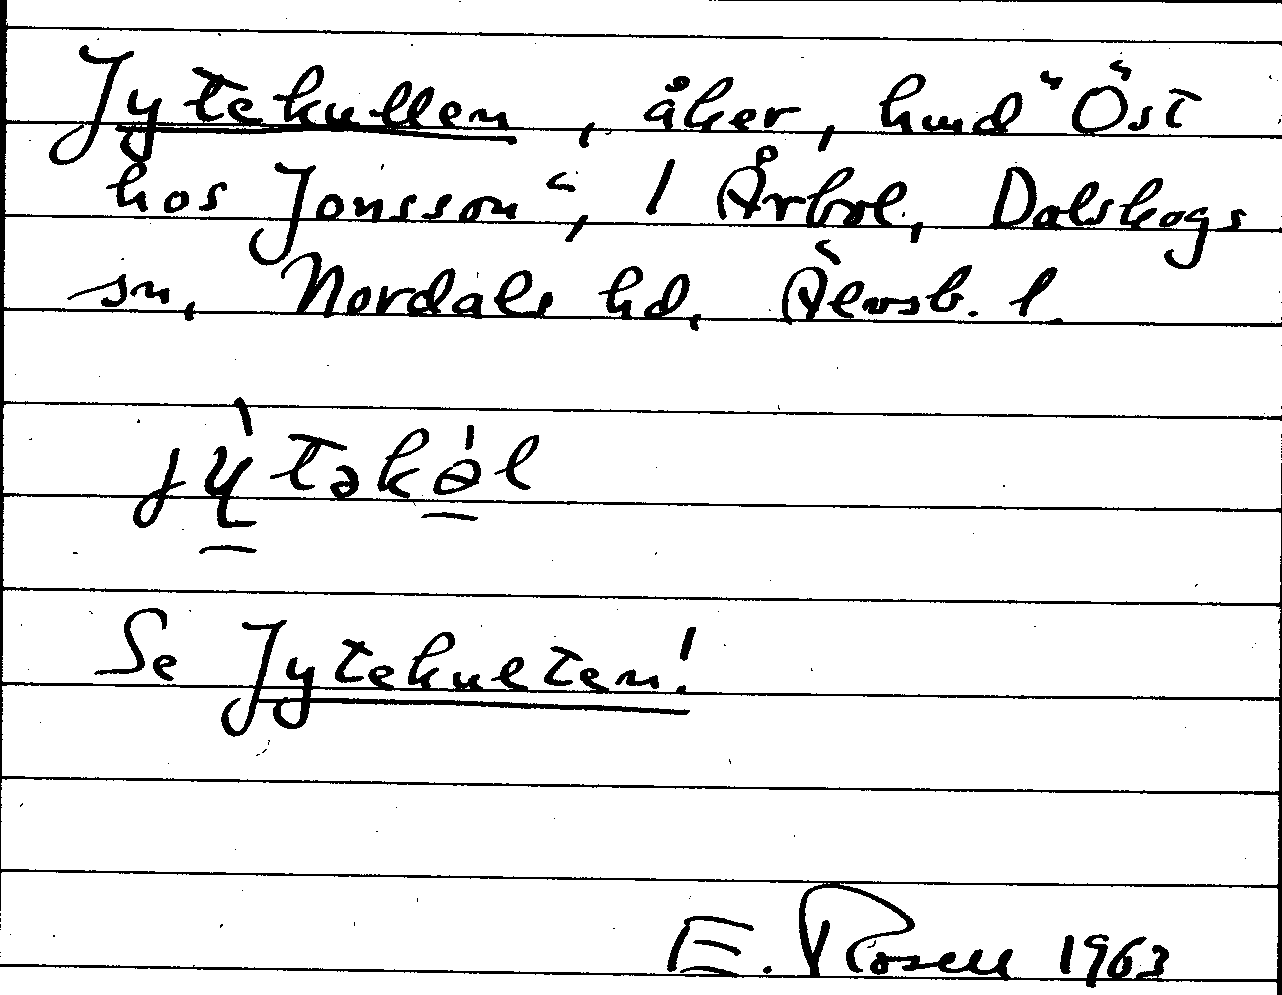 Jytekullen, åker, hmd "Öst
hos Jonsson", 1 Årbol, Dalskogs
sn, Nordals hd, Älvsb. l.
jỳ̠təkə̠̍l
Se Jytekulten!
E. Rosell 1963